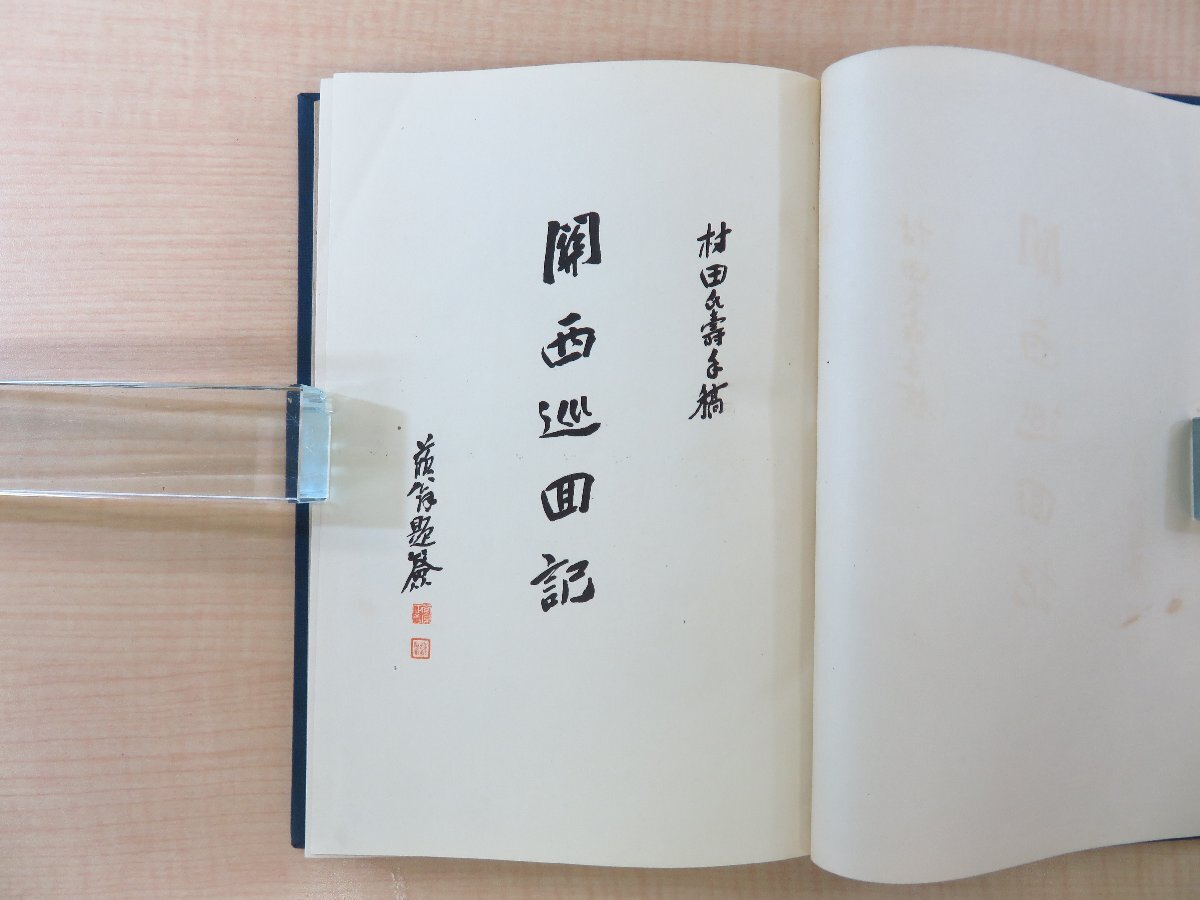 村田氏壽手稿
關西巡回記
蘋翁題簽